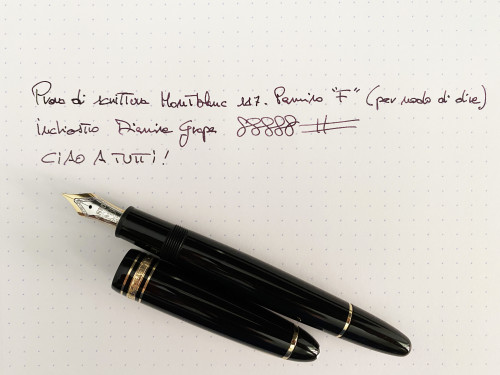 Prova di scrittura Montblanc 147. Pennino "F" (per modo di dire)
inchiostro Diamine Grape
CIAO A TUTTI!